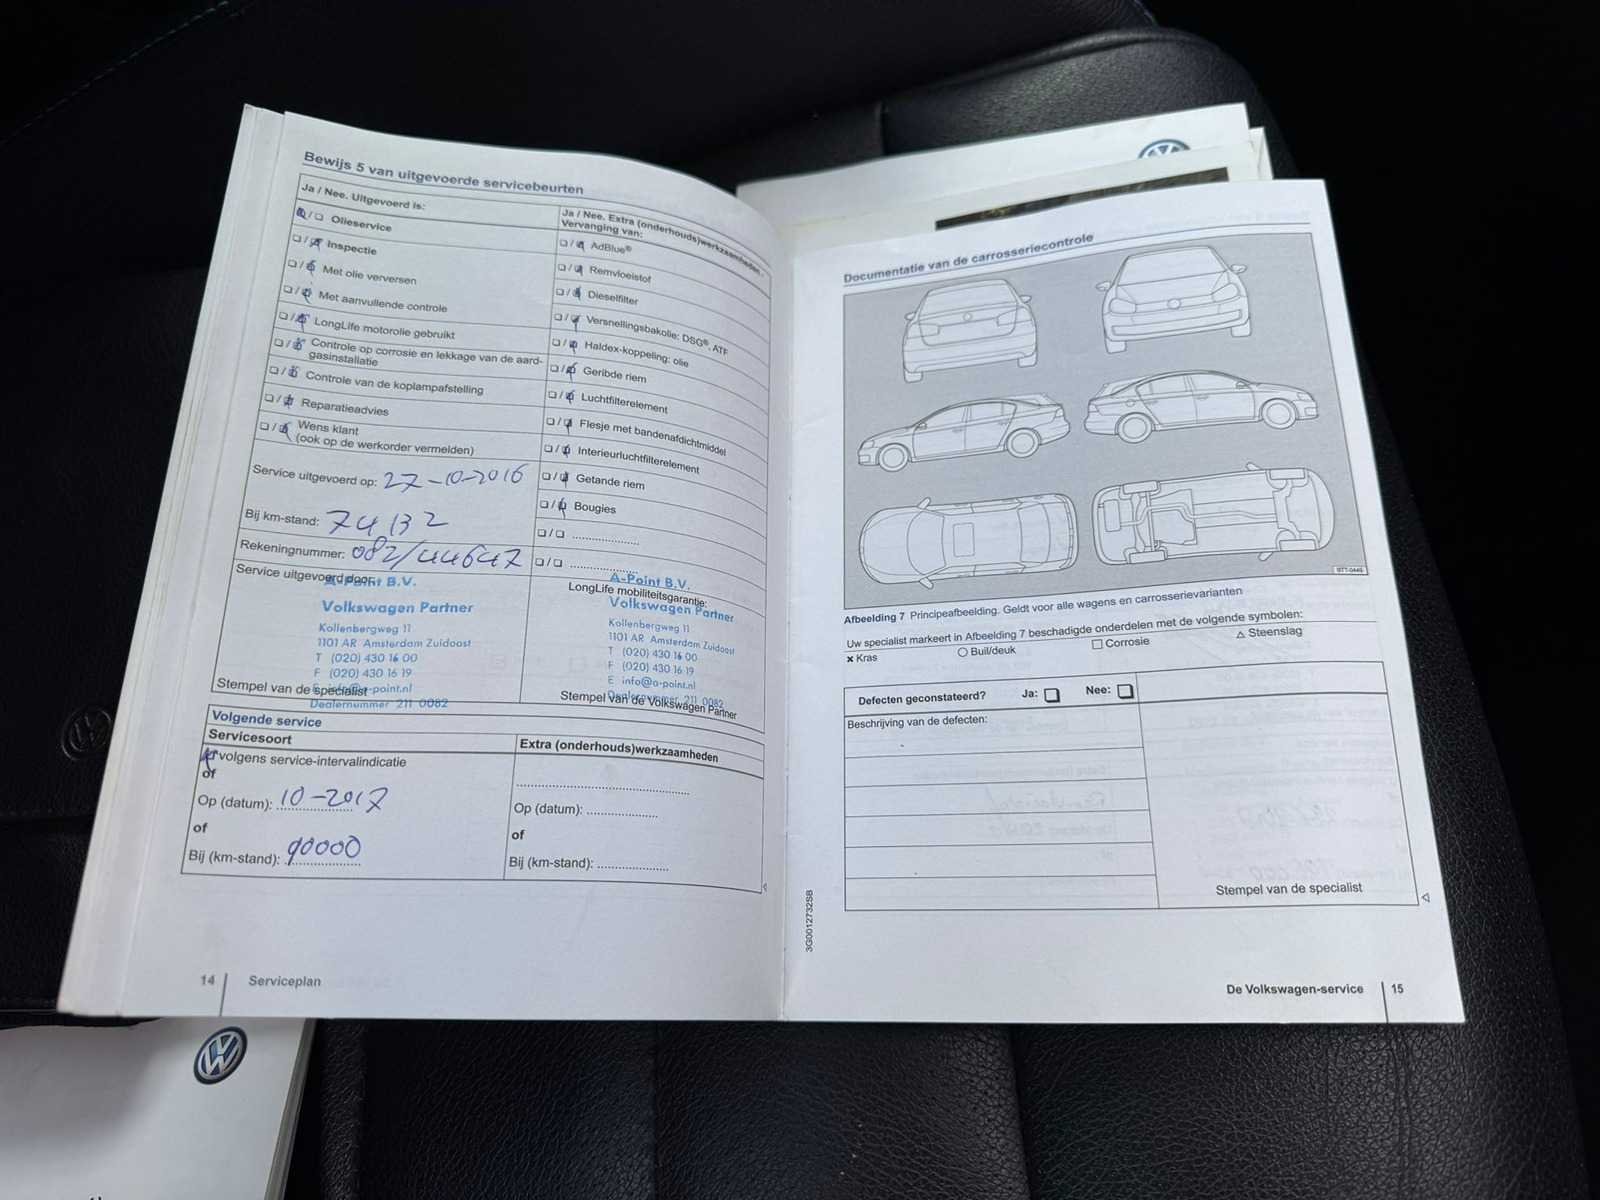 Bewijs 5 van uitgevoerde servicebeurten
Ja / Nee. Uitgevoerd is:
❑/❑ Olieservice
❑/❑ Inspectie
❑/❑ Met olie verversen
❑/❑ Met aanvullende controle
❑/❑ LongLife motorolie gebruikt
❑/❑ Controle op corrosie en lekkage van de aard-
gasinstallatie
❑/❑ Controle van de koplampafstelling
❑/❑ Reparatieadvies
❑/❑ Wens klant
(ook op de werkorder vermelden)
Service uitgevoerd op: 27-10-2016
Bij km-stand: 74132
Rekeningnummer: 082/44647
Service uitgevoerd door:
A-Point B.V.
Volkswagen Partner
Kollenbergweg 11
1101 AR Amsterdam Zuidoost
T (020) 430 16 00
F (020) 430 16 19
E info@a-point.nl
Dealernummer 211 0082
Stempel van de specialist
Ja / Nee. Extra (onderhouds)werkzaamheden -
Vervanging van:
❑/❑ AdBlue®
❑/❑ Remvloeistof
❑/❑ Dieselfilter
❑/❑ Versnellingsbakolie: DSG®, ATF
❑/❑ Haldex-koppeling: olie
❑/❑ Geribde riem
❑/❑ Luchtfilterelement
❑/❑ Flesje met bandenafdichtmiddel
❑/❑ Interieurluchtfilterelement
❑/❑ Getande riem
❑/❑ Bougies
❑/❑ ....................
❑/❑ ....................
LongLife mobiliteitsgarantie:
A-Point B.V.
Volkswagen Partner
Kollenbergweg 11
1101 AR Amsterdam Zuidoost
T (020) 430 16 00
F (020) 430 16 19
E info@a-point.nl
Dealernummer 211 0082
Stempel van de Volkswagen Partner
Volgende service
Servicesoort
❑ volgens service-intervalindicatie
of
Op (datum): 10-2017
of
Bij (km-stand): 90000
Extra (onderhouds)werkzaamheden
........................................
Op (datum): ................
of
Bij (km-stand): ................
14 Serviceplan
Documentatie van de carrosseriecontrole
BTT-0449
Afbeelding 7 Principeafbeelding. Geldt voor alle wagens en carrosserievarianten
Uw specialist markeert in Afbeelding 7 beschadigde onderdelen met de volgende symbolen:
✖ Kras ○ Buil/deuk □ Corrosie △ Steenslag
Defecten geconstateerd? Ja: ❑ Nee: ❑
Beschrijving van de defecten:
Stempel van de specialist
3G0012732SB
De Volkswagen-service 15